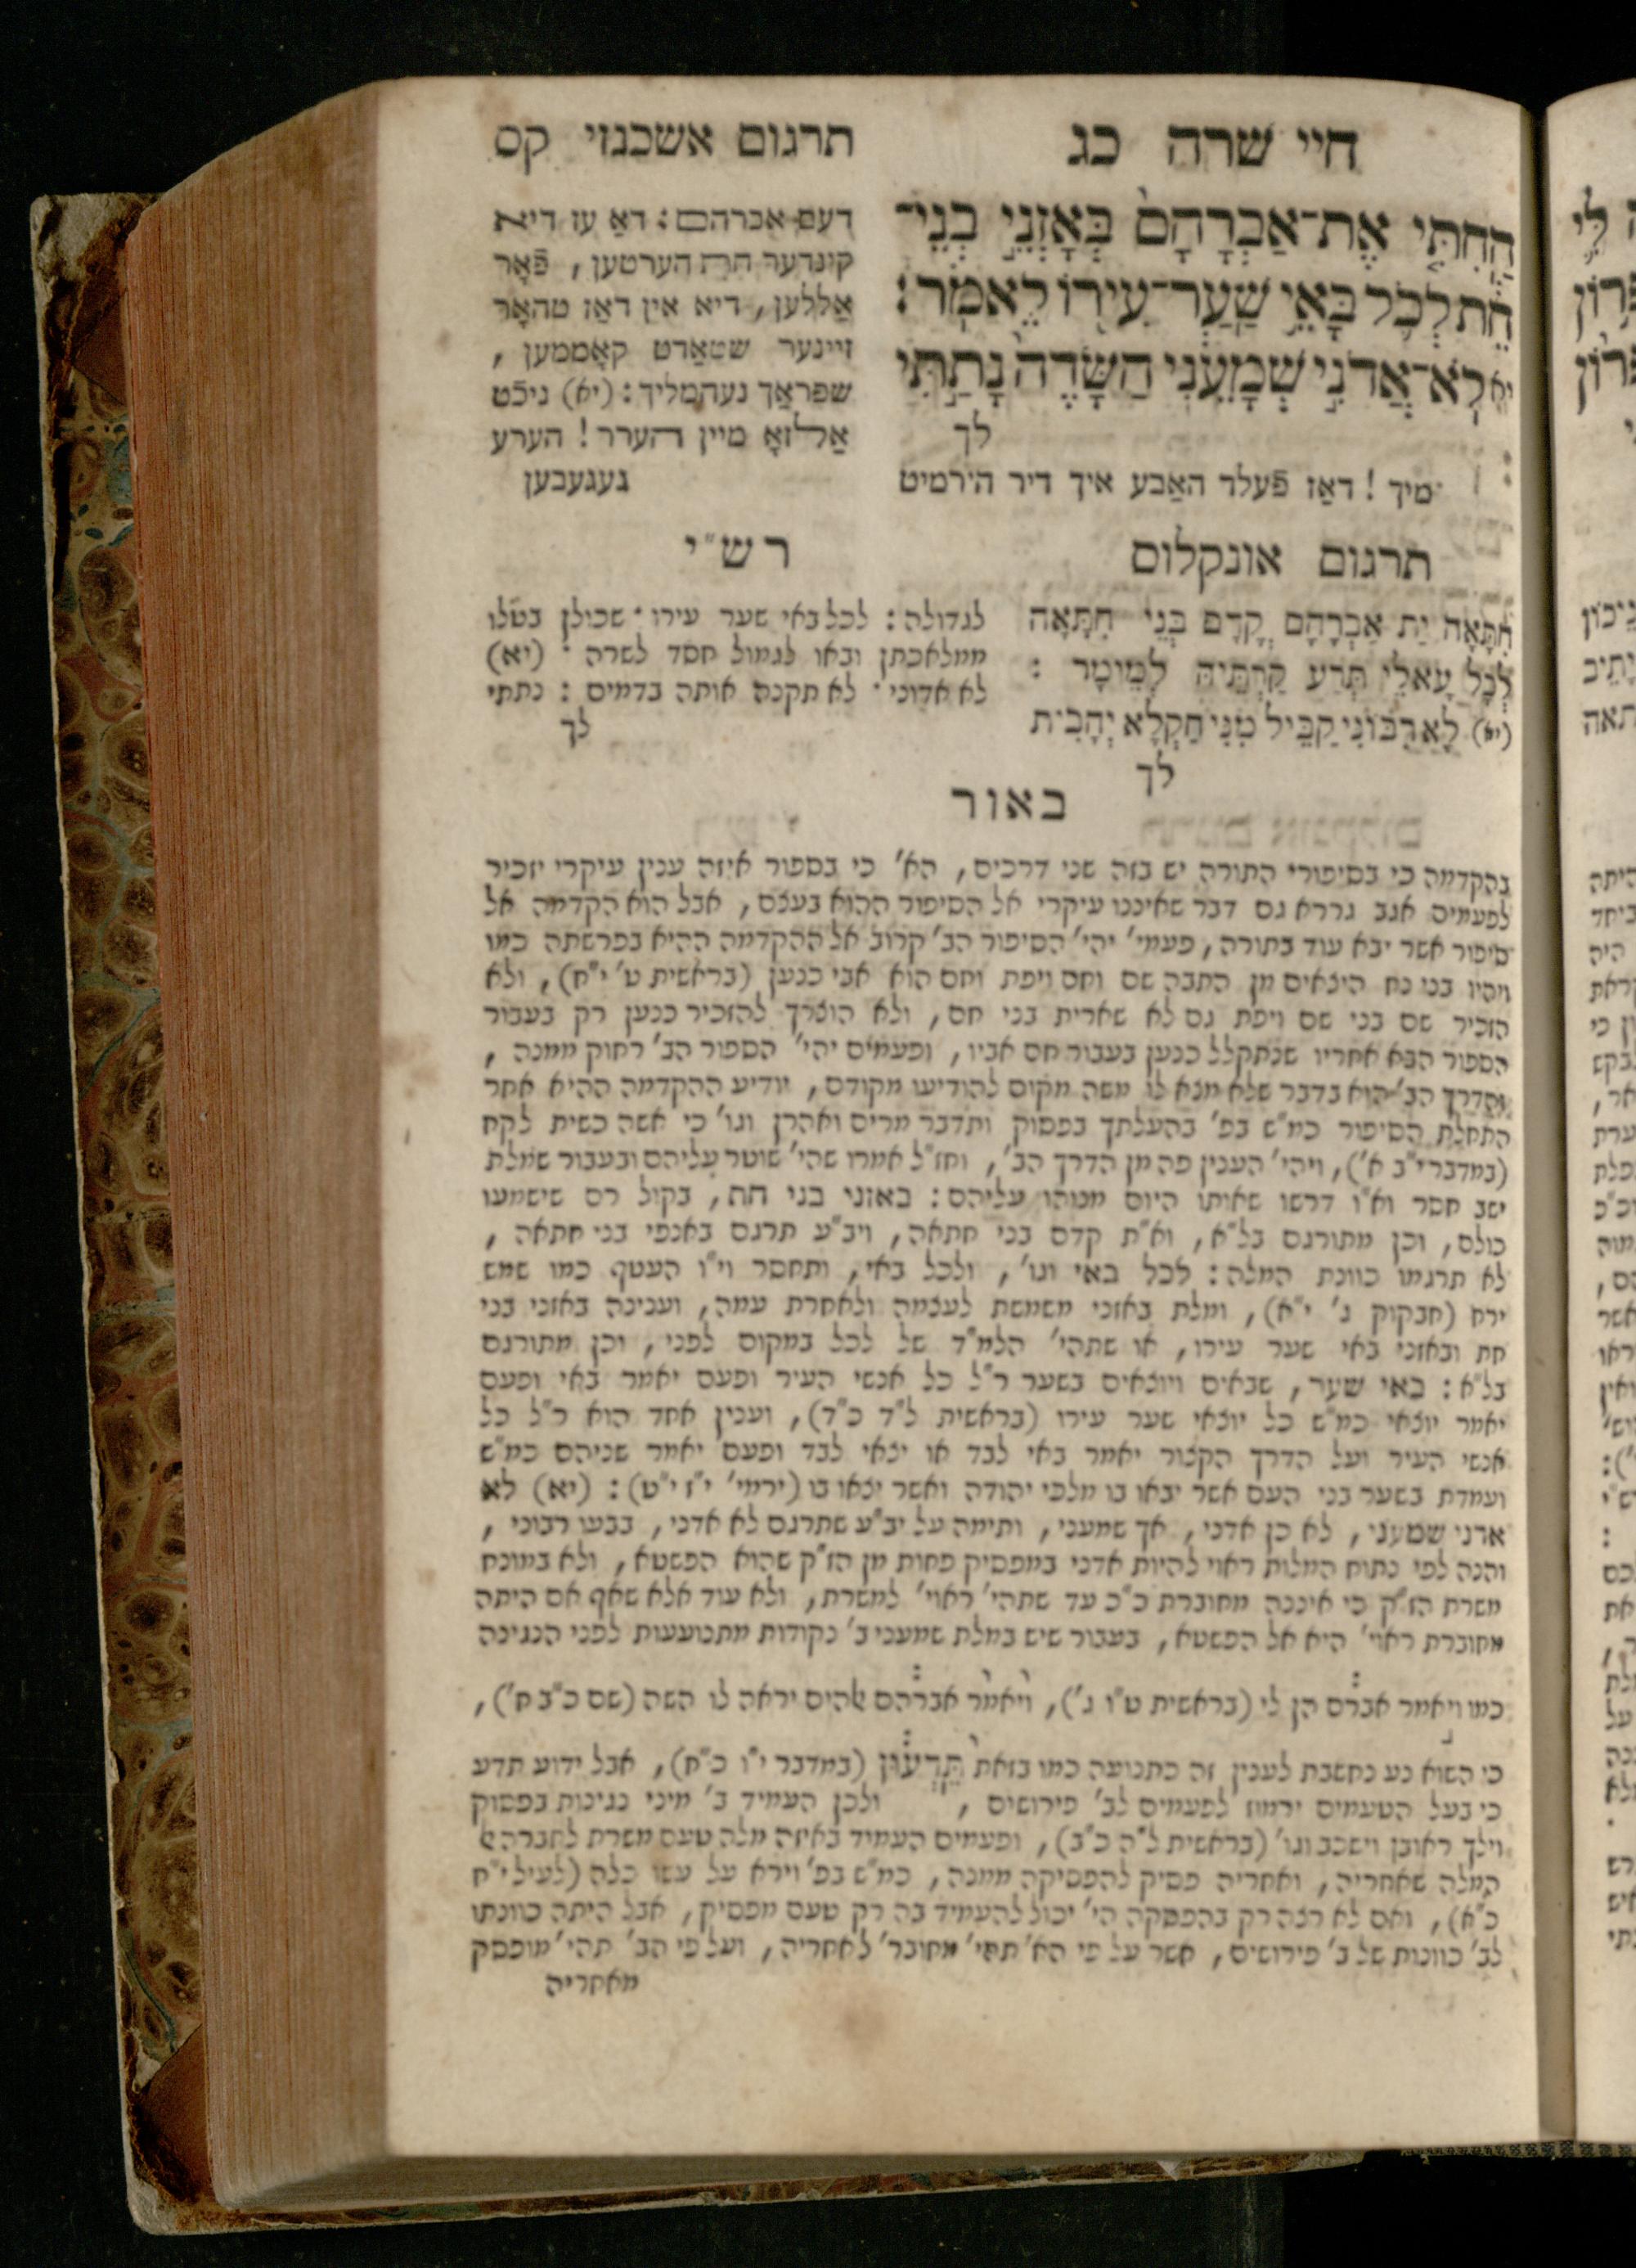 חיי שרה כג
תרגום אשכנזי קס
הַחִתִּי אֶת־אַבְרָהָם בְּאָזְנֵי בְנֵי־
חֵת לְכֹל בָּאֵי שַׁעַר־עִירוֹ לֵאמֹר:
יא לֹא־אֲדֹנִי שְׁמָעֵנִי הַשָּׂדֶה נָתַתִּי
לך
דעם אברהם: דאַ עז דיא
קינדער חת הערטען, פֿאָר
אַללען, דיא אין דאַז טהאָר
זיינער שטאַדט קאָממען,
שפראַך נעהמליך: (יא) ניכֿט
אַלזאָ מיין הערר! הערע
מיך! דאַז פֿעלד האַבע איך דיר הירמיט
געגעבען
תרגום אונקלוס
חִתָּאָה יַת אַבְרָהָם קֳדָם בְּנֵי חִתָּאָה
לְכָל עָאלֵי תְּרַע קַרְתֵּיהּ לְמֵימָר:
(יא) לָא רִבּוֹנִי קַבֵּיל מִנִּי חַקְלָא יְהָבִית
לך
רש"י
לגדולה: לכל באי שער עירו· שכולן בטלו
ממלאכתן ובאו לגמול חסד לשרה· (יא)
לא אדוני· לא תקנה אותה בדמים: נתתי
לך
באור
בהקדמה כי בסיפורי התורה יש בזה שני דרכים, הא' כי בספור איזה ענין עיקרי יזכיר
לפעמים אגב גררא גם דבר שאיננו עיקרי אל הסיפור ההוא בעצם, אבל הוא הקדמה אל
סיפור אשר יבא עוד בתורה, פעמי' יהי' הסיפור הב' קרוב אל ההקדמה ההיא בפרשתה כמו
ויהיו בני נח היצאים מן התבה שם וחם ויפת וחם הוא אבי כנען (בראשית ט' י"ח), ולא
הזכיר שם בני שם ויפת גם לא שארית בני חם, ולא הוצרך להזכיר כנען רק בעבור
הספור הבא אחריו שנתקלל כנען בעבור חם אביו, ופעמים יהי' הספור הב' רחוק ממנה,
והדרך הב' הוא בדבר שלא מצא לו משה מקום להודיעו מקודם, יודיע ההקדמה ההיא אחר
התחלת הסיפור כמ"ש בפ' בהעלתך בפסוק ותדבר מרים ואהרן וגו' כי אשה כשית לקח
(במדבר י"ב א'), ויהי' הענין פה מן הדרך הב', וחז"ל אמרו שהי' שוטר עליהם ובעבור שמלת
ישב חסר וא"ו דרשו שאותו היום מנוהו עליהם: באזני בני חת, בקול רם שישמעו
כולם, וכן מתורגם בל"א, וא"ת קדם בני חתאה, ויב"ע תרגם באנפי בני חתאה,
לא תרגמו כוונת המלה: לכל באי וגו', ולכל באי, ותחסר וי"ו העטף כמו שמש
ירח (חבקוק ג' י"א), ומלת באזני משמשת לעצמה ולאחרת עמה, וענינה באזני בני
חת ובאזני באי שער עירו, או שתהי' הלמ"ד של לכל במקום לפני, וכן מתורגם
בל"א: באי שער, שבאים ויוצאים בשער ר"ל כל אנשי העיר ופעם יאמר באי ופעם
יאמר יוצאי כמ"ש כל יוצאי שער עירו (בראשית ל"ד כ"ד), וענין אחד הוא ר"ל כל
אנשי העיר ועל הדרך הקצור יאמר באי לבד או יצאי לבד ופעם יאמר שניהם כמ"ש
ועמדת בשער בני העם אשר יבאו בו מלכי יהודה ואשר יצאו בו (ירמי' י"ז י"ט): (יא) לא
אדני שמעני, לא כן אדני, אך שמעני, ותימה על יב"ע שתרגם לא אדני, בבעו רבוני,
והנה לפי נתוח המלות ראוי להיות אדני במפסיק פחות מן הז"ק שהוא הפשטא, ולא במונח
משרת הז"ק כי איננה מחוברת כ"כ עד שתהי' ראוי' למשרת, ולא עוד אלא שאף אם היתה
מחוברת ראוי' היא אל הפשטא, בעבור שיש במלת שמעני ב' נקודות מתנועעות לפני הנגינה
כמו ויאמר אברם הן לי (בראשית ט"ו ג'), ויאמר אברהם אלהים יראה לו השה (שם כ"ב ח'),
כי השוא נע נחשבת לענין זה כתנועה כמו בזאת תֵּדְעוּן (במדבר י"ו כ"ח), אבל ידוע תדע
כי בעל הטעמים ירמוז לפעמים לב' פירושים, ולכן העמיד ב' מיני נגינות בפסוק
וילך ראובן וישכב וגו' (בראשית ל"ה כ"ב), ופעמים העמיד באיזה מלה טעם משרת לחברה אל
המלה שאחריה, ואחריה פסיק להפסיקה ממנה, כמ"ש בפ' וירא על עשו כלה (לעיל י"ח
כ"א), ואם לא רצה רק בהפסקה הי' יכול להעמיד בה רק טעם מפסיק, אבל היתה כוונתו
לב' כוונות של ב' פירושים, אשר על פי הא' תהי' מחובר' לאחריה, ועל פי הב' תהי' מופסק
מאחריה